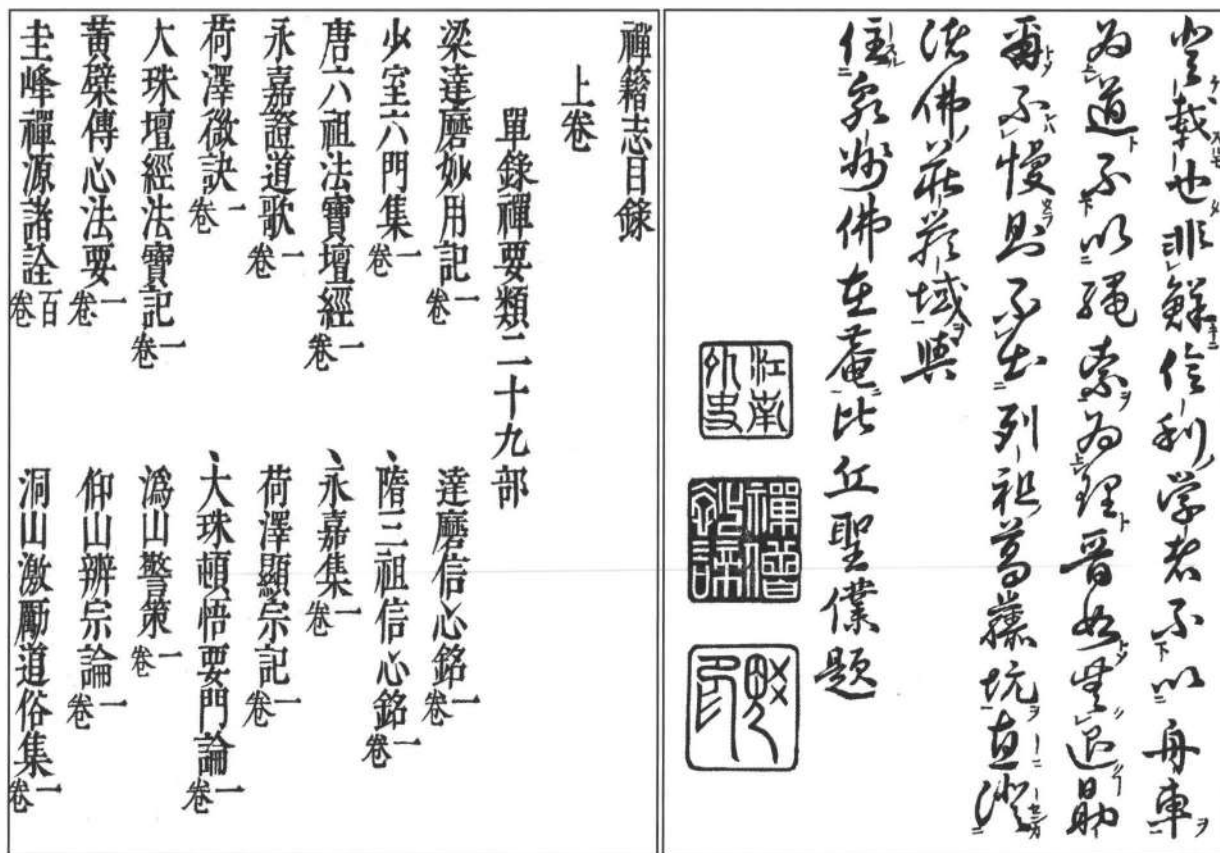 登載也非鮮信利学者不以舟車
為道不以縄索為理
爾不慢則不出列祖葛藤坑直證
諸佛莊嚴域與
住泉州佛在菴比丘聖僕題
江南外史
禪籍志目錄
上卷
單錄禪要類二十九部
梁達磨妙用記一卷 達磨信心銘一卷
少室六門集一卷 隋三祖信心銘一卷
唐六祖法寶壇經一卷 永嘉集一卷
永嘉證道歌一卷 荷澤顯宗記一卷
荷澤微訣一卷 大珠頓悟要門論一卷
大珠壇經法寶記一卷 溈山警策一卷
黃檗傳心法要一卷 仰山辨宗論一卷
圭峰禪源諸詮百卷 洞山激勵道俗集一卷